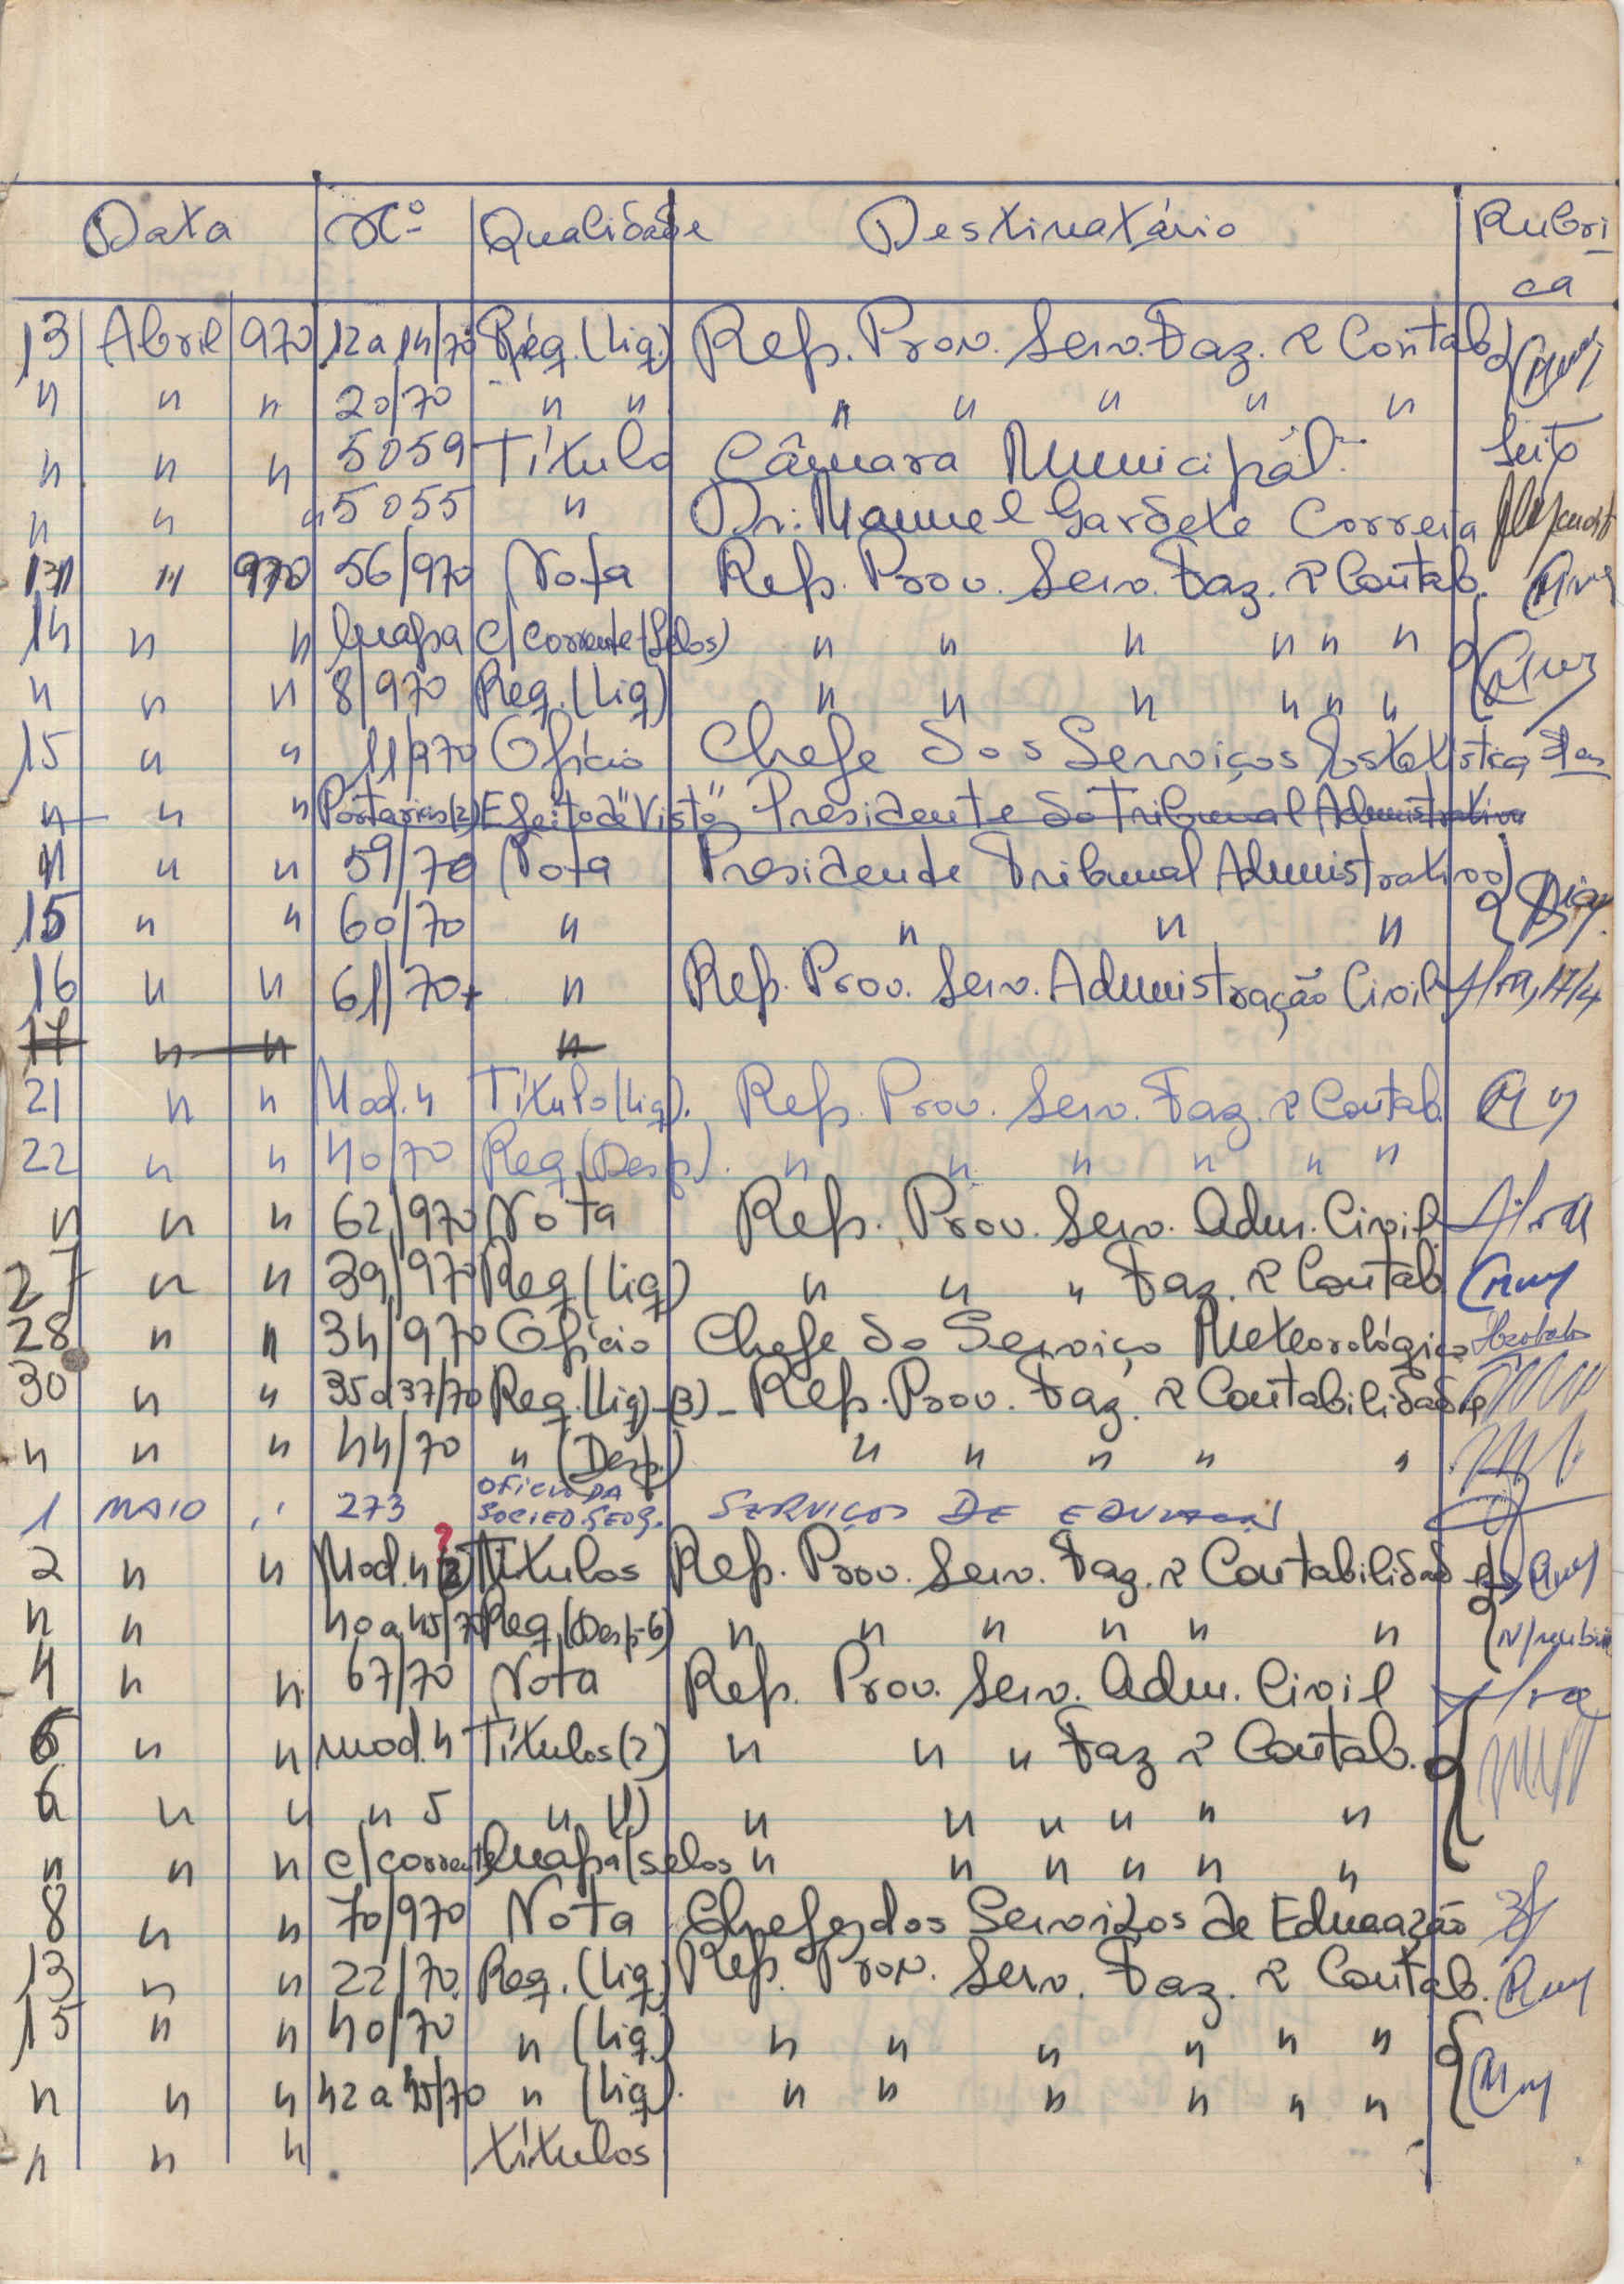 Data Nº Qualidade Destinatário Rubri-
ca
13 Abril 970 12 a 14/70 Req. (Liq.) Rep. Prov. Serv. Faz. e Contab.
" " " 20/70 " " " " " " "
" " " 5059 Título Câmara Municipal
" " " 5055 " Dr. Manuel Gardete Correia
" 970 56/970 Nota Rep. Prov. Serv. Faz. e Contab.
14 " " Guapa C/Corrente (Selos) " " " " " "
" " " 8/970 Req. (Liq) " " " " " "
15 " " 11/970 Ofício Chefe dos Serviços Estatística
" " " Portarias (2) Efeito de "Visto" Presidente do Tribunal Administrativo
" " " 59/70 Nota Presidente Tribunal Administrativo
15 " " 60/70 " " " "
16 " " 61/70 " Rep. Prov. Serv. Administração Civil 17/4
17 " " "
21 " " Mod. 4 Título (Liq). Rep. Prov. Serv. Faz. e Contab.
22 " " 40/70 Req. (Desp.) " " " " " "
" " " 62/970 Nota Rep. Prov. Serv. Adm. Civil
27 " " 39/970 Req (Liq) " " " Faz. e Contab.
28 " " 34/970 Ofício Chefe do Serviço Meteorológico
30 " " 35 a 37/70 Req. (Liq) - (3) - Rep. Prov. Faz. e Contabilidade
" " " 44/70 " (Desp.) " " " " "
1 MAIO " 273 OFICIO DA
SOCIED. GEOG. SERVIÇOS DE EDUCAÇÃO
2 " " Mod. 4 (2) ? Títulos Rep. Prov. Serv. Faz. e Contabilidade
" " 40 a 45/70 Req (Desp-6) " " " " " "
4 " " 67/70 Nota Rep. Prov. Serv. Adm. Civil
6 " " mod. 4 Títulos (2) " " " Faz e Contab.
6 " " " 5 " (1) " " " " " "
" " " c/corrente Guapa (selos " " " " " "
8 " " 70/970 Nota Chefe dos Serviços de Educação
13 " " 22/70 Req. (Liq.) Rep. Prov. Serv. Faz. e Contab.
15 " " 40/70 " (Liq.) " " " " " "
" " " 42 a 45/70 " (Liq). " " " " " "
" " " títulos